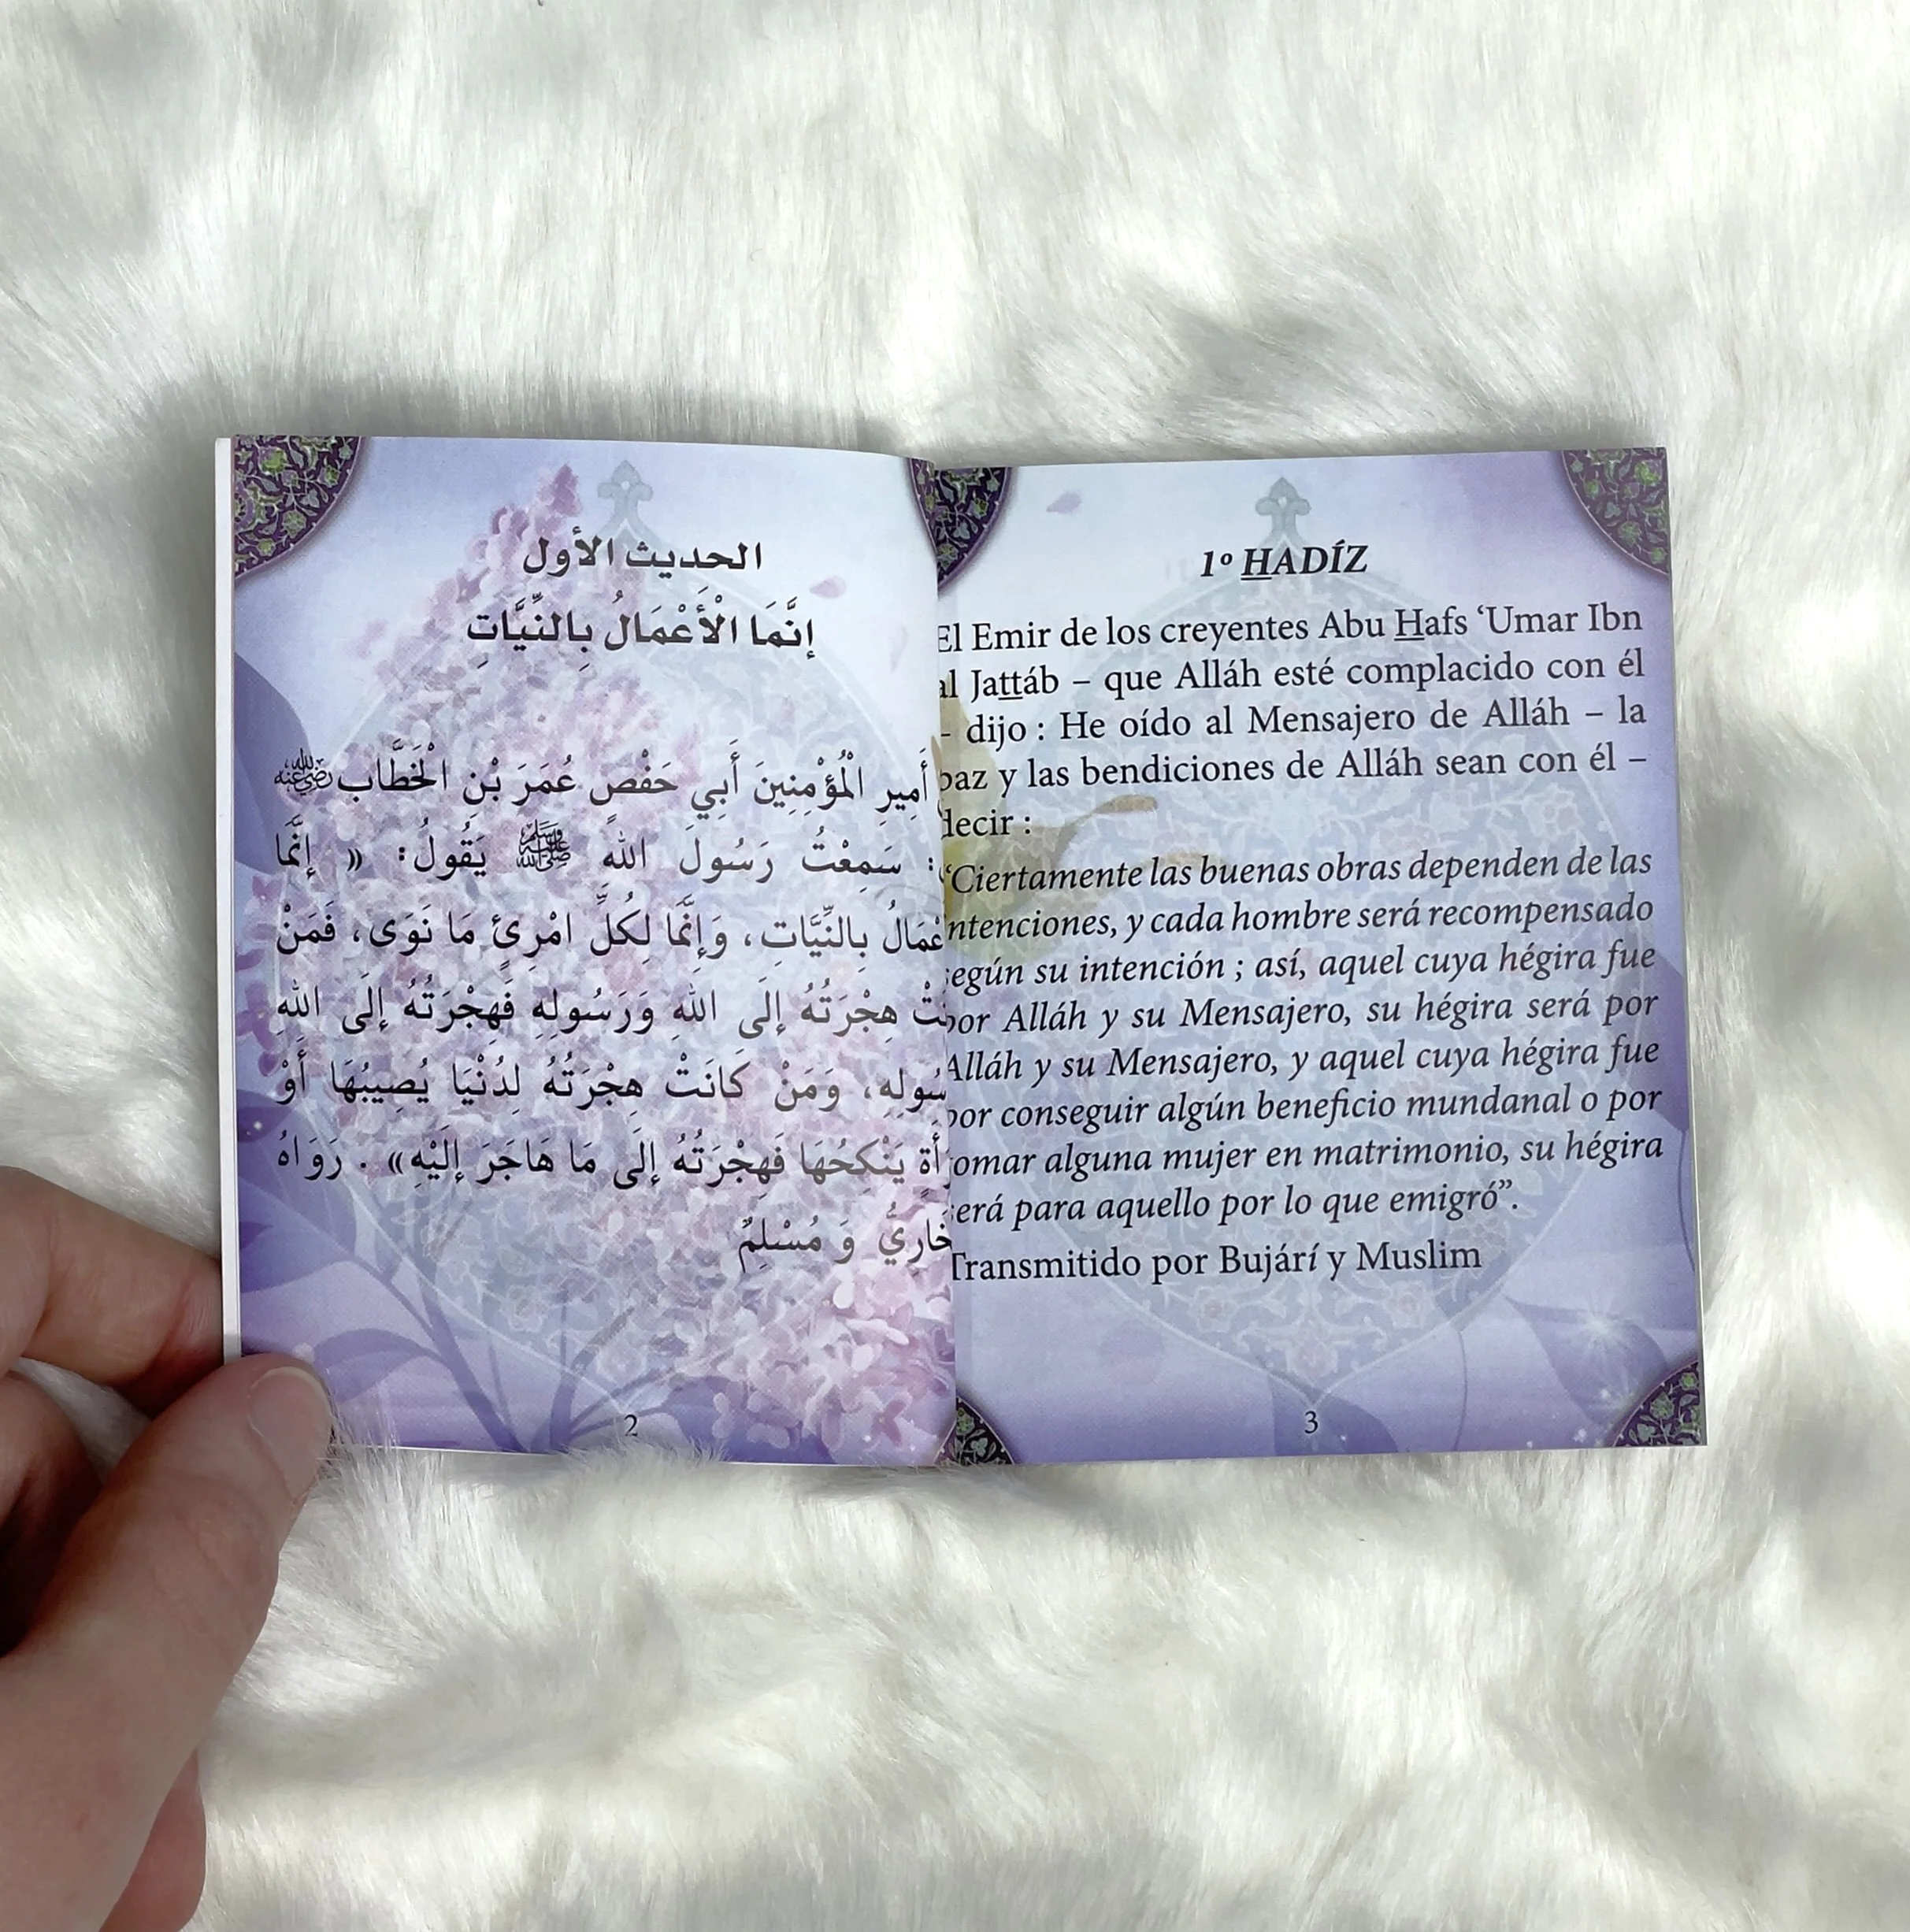 الحديث الأول
إنَّمَا الْأَعْمَالُ بِالنِّيَّاتِ
أَمِيرِ الْمُؤْمِنِينَ أَبِي حَفْصٍ عُمَرَ بْنِ الْخَطَّاب رضي الله عنه
: سَمِعْتُ رَسُولَ اللهِ ﷺ يَقُولُ: « إِنَّمَا
بِالنِّيَّاتِ، وَإِنَّمَا لِكُلِّ امْرِئٍ مَا نَوَى، فَمَنْ
هِجْرَتُهُ إِلَى اللهِ وَرَسُولِهِ فَهِجْرَتُهُ إِلَى اللهِ
وَمَنْ كَانَتْ هِجْرَتُهُ لِدُنْيَا يُصِيبُهَا أَوْ
يَنْكِحُهَا فَهِجْرَتُهُ إِلَى مَا هَاجَرَ إِلَيْهِ» . رَوَاهُ
وَ مُسْلِمٌ
2
1º HADÍZ
El Emir de los creyentes Abu Hafs ‘Umar Ibn
al Jattáb – que Alláh esté complacido con él
– dijo : He oído al Mensajero de Alláh – la
paz y las bendiciones de Alláh sean con él –
decir :
“Ciertamente las buenas obras dependen de las
ntenciones, y cada hombre será recompensado
egún su intención ; así, aquel cuya hégira fue
por Alláh y su Mensajero, su hégira será por
Alláh y su Mensajero, y aquel cuya hégira fue
por conseguir algún beneficio mundanal o por
omar alguna mujer en matrimonio, su hégira
erá para aquello por lo que emigró”.
Transmitido por Bujárí y Muslim
3